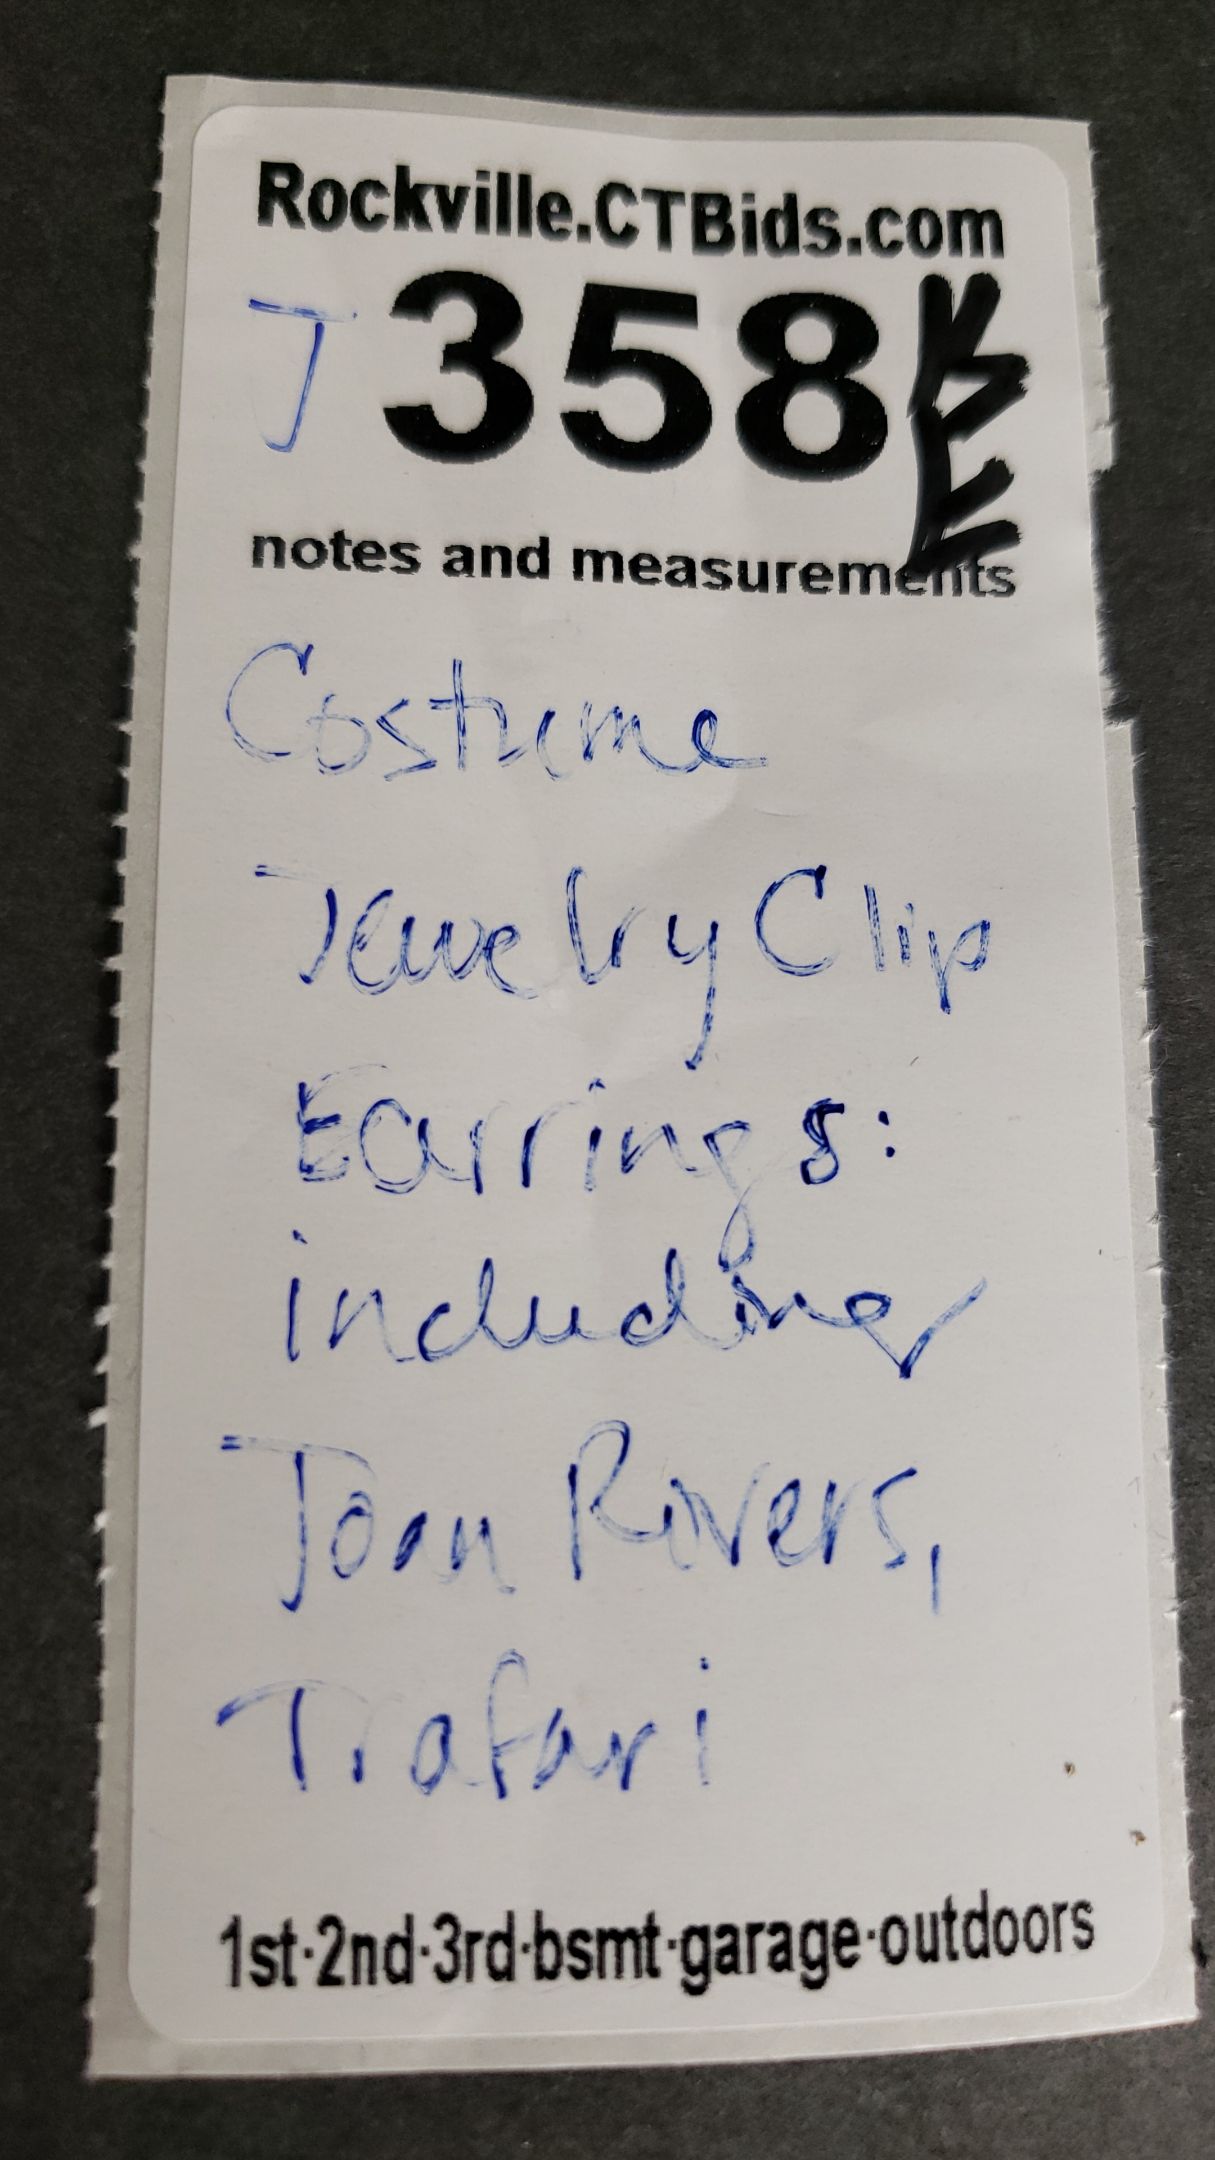 Rockville.CTBids.com
J 358 E
notes and measurements
Costume
Jewelry Clip
Earrings:
including
Joan Rivers,
Trafari
1st·2nd·3rd·bsmt·garage·outdoors